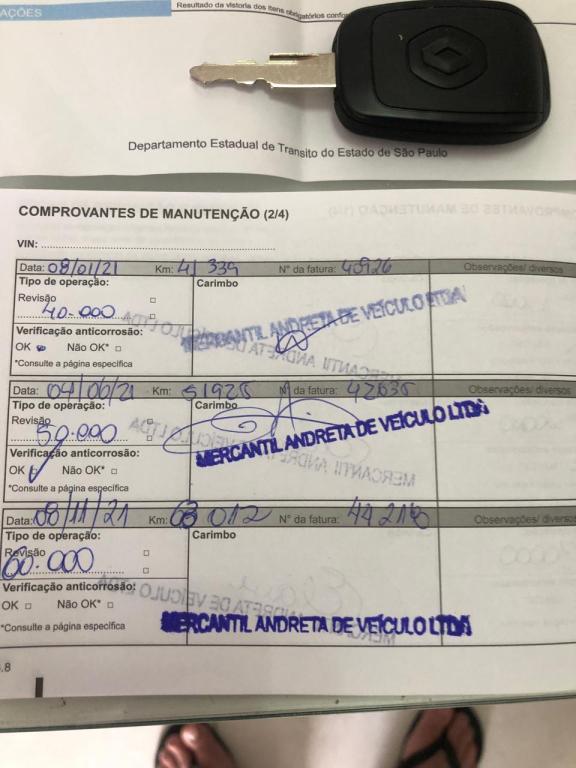 AÇÕES
Resultado da vistoria dos itens obrigatórios
Departamento Estadual de Transito do Estado de São Paulo
COMPROVANTES DE MANUTENÇÃO (2/4)
VIN:
Data: 08/01/21 Km: 41 339 N° da fatura: 40926 Observações/ diversos
Tipo de operação: Carimbo
Revisão
40.000
MERCANTIL ANDRETA DE VEÍCULO LTDA
Verificação anticorrosão:
OK Não OK*
*Consulte a página específica
Data: 04/06/21 Km: 51925 N° da fatura: Observações/ diversos
Tipo de operação: Carimbo
Revisão
50.000
MERCANTIL ANDRETA DE VEÍCULO LTDA
Verificação anticorrosão:
OK Não OK*
*Consulte a página específica
Data: 08/11/21 Km: 63 012 N° da fatura: Observações/ diversos
Tipo de operação: Carimbo
Revisão
60.000
Verificação anticorrosão:
OK Não OK*
*Consulte a página específica
MERCANTIL ANDRETA DE VEÍCULO LTDA
.8